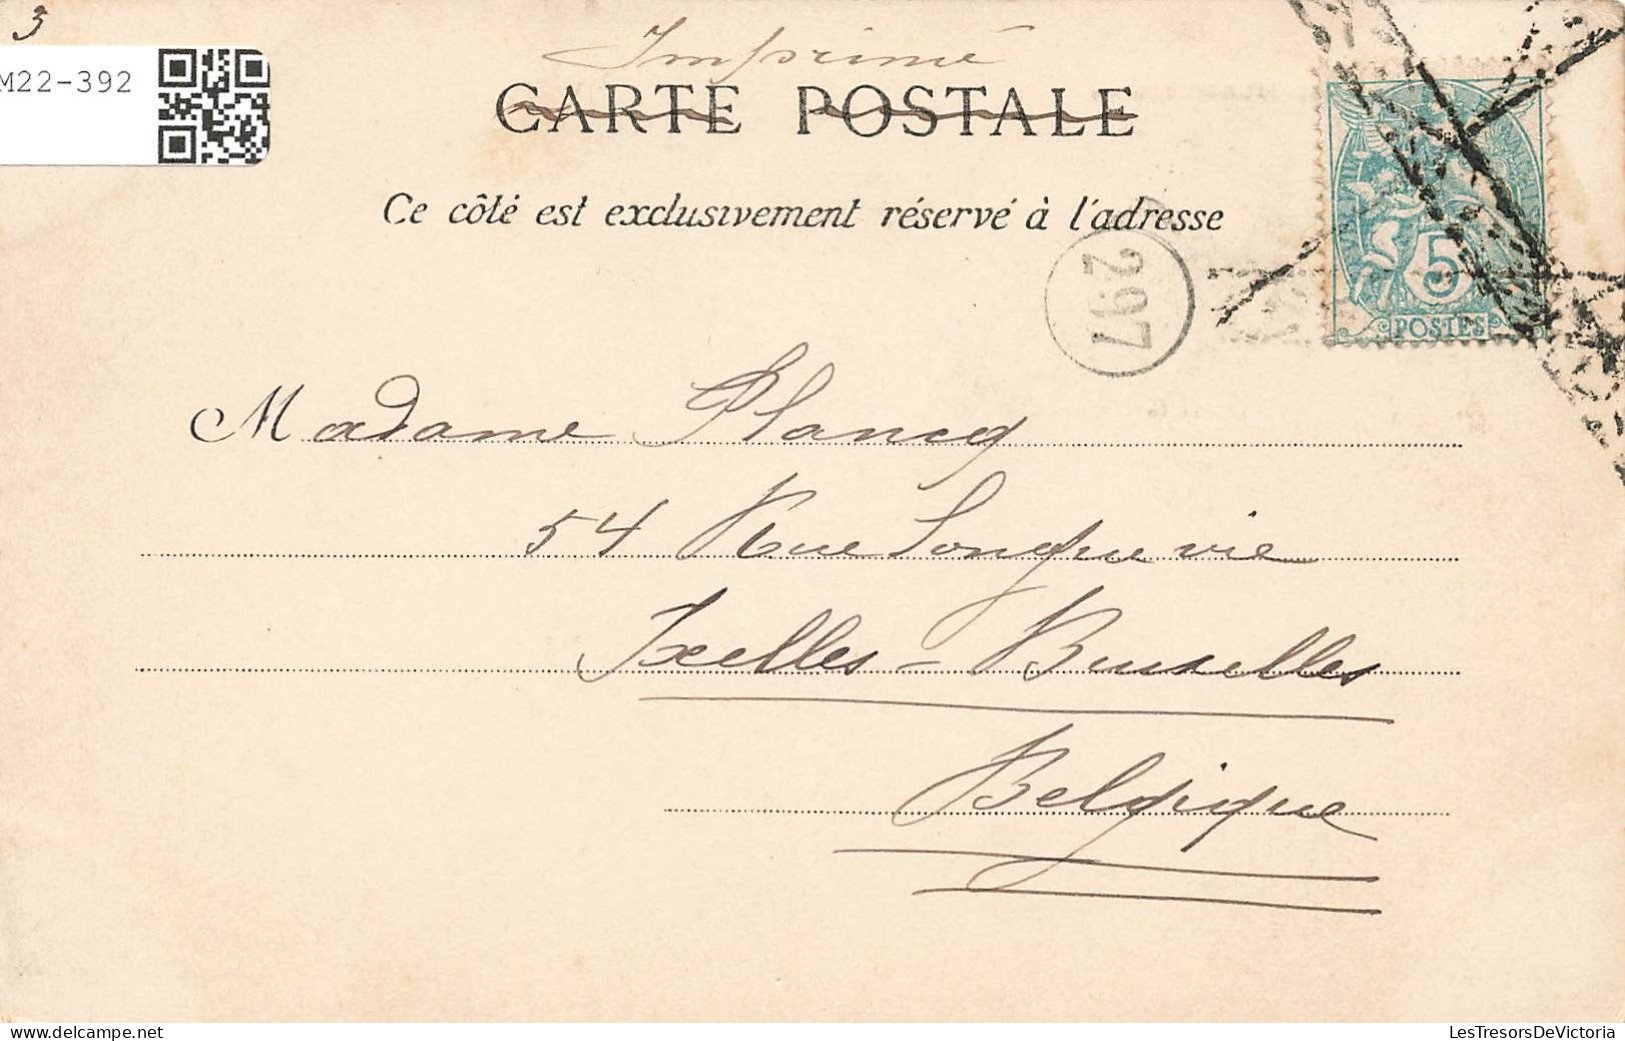 3
M22-392
Imprimé
CARTE POSTALE
Ce côté est exclusivement réservé à l'adresse
297
5
POSTES
Madame Plancq
54 Rue Longue vie
Ixelles - Bruxelles
Belgique
LesTresorsDeVictoria